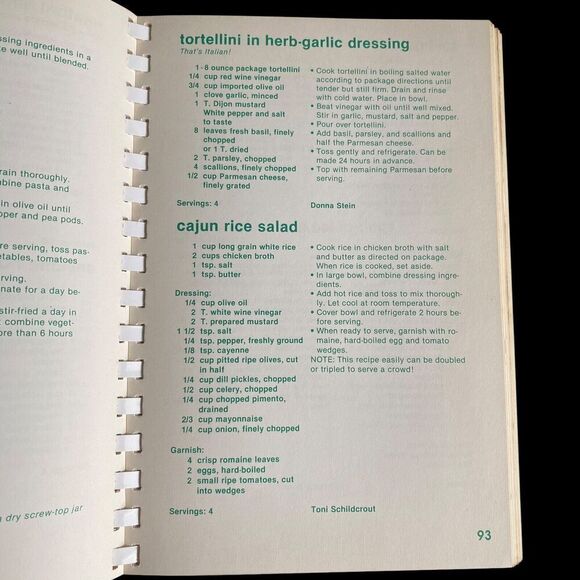 ssing ingredients in a
e well until blended.
rain thoroughly.
mbine pasta and
in olive oil until
pper and pea pods.
re serving, toss pas-
etables, tomatoes
rving.
nate for a day be-
stir-fried a day in
t combine veget-
ore than 6 hours
dry screw-top jar
tortellini in herb-garlic dressing
That's Italian!
1 - 8 ounce package tortellini
1/4 cup red wine vinegar
3/4 cup imported olive oil
1 clove garlic, minced
1 T. Dijon mustard
White pepper and salt
to taste
8 leaves fresh basil, finely
chopped
or 1 T. dried
2 T. parsley, chopped
4 scallions, finely chopped
1/2 cup Parmesan cheese,
finely grated
• Cook tortellini in boiling salted water
according to package directions until
tender but still firm. Drain and rinse
with cold water. Place in bowl.
• Beat vinegar with oil until well mixed.
Stir in garlic, mustard, salt and pepper.
• Pour over tortellini.
• Add basil, parsley, and scallions and
half the Parmesan cheese.
• Toss gently and refrigerate. Can be
made 24 hours in advance.
• Top with remaining Parmesan before
serving.
Servings: 4
Donna Stein
cajun rice salad
1 cup long grain white rice
2 cups chicken broth
1 tsp. salt
1 tsp. butter
Dressing:
1/4 cup olive oil
2 T. white wine vinegar
2 T. prepared mustard
1 1/2 tsp. salt
1/4 tsp. pepper, freshly ground
1/8 tsp. cayenne
1/2 cup pitted ripe olives, cut
in half
1/4 cup dill pickles, chopped
1/2 cup celery, chopped
1/4 cup chopped pimento,
drained
2/3 cup mayonnaise
1/4 cup onion, finely chopped
Garnish:
4 crisp romaine leaves
2 eggs, hard-boiled
2 small ripe tomatoes, cut
into wedges
• Cook rice in chicken broth with salt
and butter as directed on package.
When rice is cooked, set aside.
• In large bowl, combine dressing ingre-
dients.
• Add hot rice and toss to mix thorough-
ly. Let cool at room temperature.
• Cover bowl and refrigerate 2 hours be-
fore serving.
• When ready to serve, garnish with ro-
maine, hard-boiled egg and tomato
wedges.
NOTE: This recipe easily can be doubled
or tripled to serve a crowd!
Servings: 4
Toni Schildcrout
93